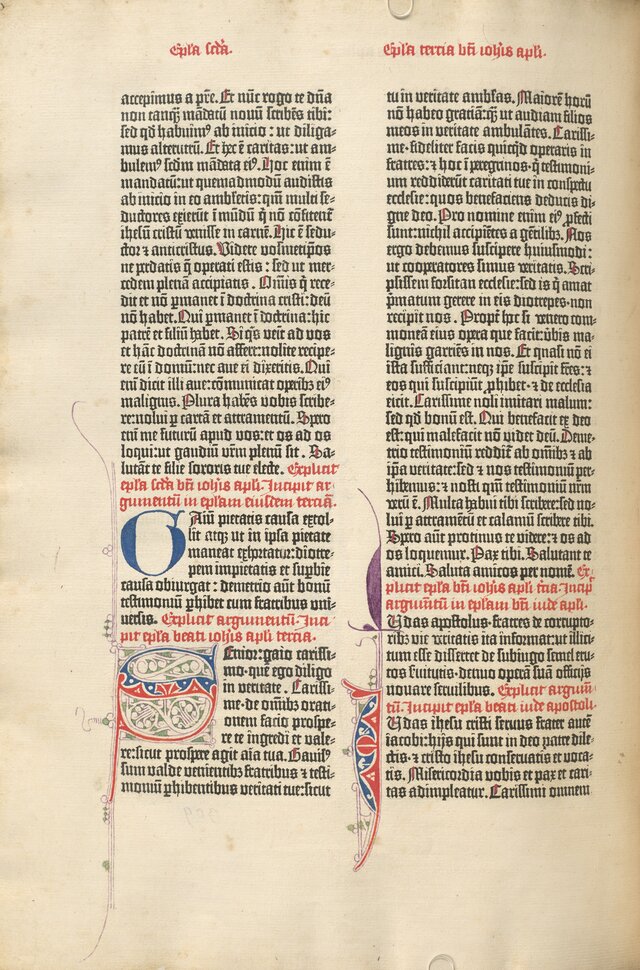 Epl̄a scd̄a.
Epl̄a tertia bt̄i ioh̄is apl̄i.
accepimus a pr̄e. Et nūc rogo te dn̄a
non tanq̄ȝ mādatū novū scribēs tibi:
sed qd̄ habuimꝰ ab inicio : ut diliga-
mus alterutrū. Et hec ē caritas: ut am-
bulemꝰ scd̄m mādata eiꝰ. Hoc enim ē
mandatū: ut quemadmodū audistis
ab inicio in eo ambletis: qm̄ multi se-
ductores exierūt ī mūdū q̄ nō cōfitent᷑
ihesūm cristū venisse in carnē. Hic ē sedu-
ctor ⁊ anticristus. Videte vosmetip̄os
ne perdatis q̄ operati estis : sed ut mer-
cedem plenā accipiatis . Om̄is q̄ rece-
dit et nō ꝑmanet ī doctrina cristi: deū
nō habet. Qui ꝑmanet ī doctrina: hic
patrē et filiū habet. Si q̄s venit ad vos
et hāc doctrinā nō affert: nolite recipe-
re eū ī domū: nec ave ei dixeritis. Qui
eni dicit illi ave: cōmunicat operibꝫ eiꝰ
malignis. Plura habēs vobis scribe-
re: nolui ꝑ cartā et attramentū. Spero
eni me futurū apud vos: et os ad os
loqui: ut gaudiū vr̄m plenū sit . Sa-
lutāt te filie sororis tue electe. Explicit
epl̄a scd̄a bt̄i ioh̄is apl̄i. Incipit ar-
gumentū in epl̄am eiusdem terciā.
Gaiū pietatis causa extol-
lit atqꝫ ut in ip̄sa pietate
maneat exhortatur: diotre-
pem impietatis et superbie
causa obiurgat : demetrio aut̄ bonū
testimoniū ꝑhibet cum fratribus uni-
versis. Explicit argumentū. Inci-
pit epl̄a beati ioh̄is apl̄i tercia.
Senior: gaio carissi-
mo. que ego diligo
in veritate . Carissi-
me. de omībꝫ orati-
onem facio prospe-
re te ingredi et vale-
re: sicut prospere agit aīa tua. Gavisꝰ
sum valde venientibꝫ fratribus ⁊ testi-
moniū ꝑhibentibus veritati tue: sicut
tu in veritate amblas. Maiorē horū
nō habeo gratiā: q̄ȝ ut audiam filios
meos in veritate ambulātes. Carissi-
me. fideliter facis quicqd̄ operaris in
fratres: ⁊ hoc ī peregrinos. q̄ testimoni-
um reddiderūt caritati tue in conspectu
ecclesie: quos benefaciens deducis di-
gne deo. Pro nomine enim eiꝰ ꝓfecti
sunt: nichil accipiētes a gētilibꝫ. Nos
ergo debemus suscipere huiusmodi:
ut cooperatores simus veritatis. Scri-
psissem forsitan ecclesie: sed is q̄ amat
ꝑmatum gerere in eis diotrepes. non
recipit nos . Propt̄ hoc si venero com-
moneā eius opera que facit: v̄bis ma-
lignis garriēs in nos. Et quasi nō ei
ista sufficiant: neqꝫ ip̄e suscipit fr̄es: ⁊
eos qui suscipiūt ꝓhibet . ⁊ de ecclesia
eicit. Carissime noli imitari malum:
sed qd̄ bonū est. Qui benefacit ex deo
est: qui malefacit nō videt deū. Deme-
trio testimoniū reddit᷑ ab omībꝫ ⁊ ab
ip̄a veritate: sed ⁊ nos testimoniū per-
hibemus: ⁊ nosti qm̄ testimoniū nrm̄
verū ē. Multa habui tibi scribere: sed no-
lui ꝑ attramentū et calamū scribere tibi.
Spero aut̄ protinus te videre: ⁊ os ad
os loquemur. Pax tibi. Salutant te
amici. Saluta amicos per nomē. Ex-
plicit epl̄a bt̄i ioh̄is apl̄i t̄cia. Incip̄
argumt̄ū in epl̄am bt̄i iude apl̄i.
Iudas apostolus. fratres de corrupto-
ribꝫ vie veritatis ita informat: ut illici-
tum esse disseret de subiugo semel eru-
tos svitutis . denuo opera sua officijs
novare servilibus. Explicit argum-
tū. Incipit epl̄a beati iude apostoli
Iudas ihesu cristi servus frater autē
iacobi: hijs qui sunt in deo patre dile-
ctis. ⁊ cristo ihesu conservatis et voca-
tis. Misericordia vobis et pax et cari-
tas adimpleatur. Carissimi omnem